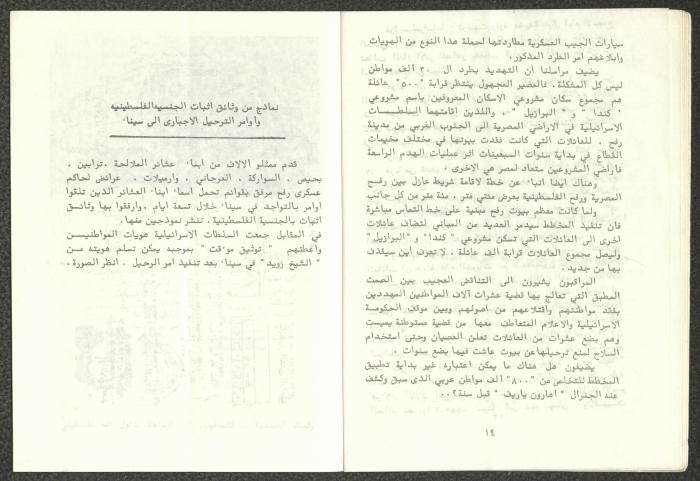 سيارات الجيب العسكرية مطاردتها لحملة هذا النوع من الهويات
وابلاغهم امر الطرد المذكور.
يضيف مراسلنا ان التهديد بطرد ال ٣٠ الف مواطن
ليس كل المشكلة. فالمصير المجهول ينتظر قرابة "٥٠٠" عائلة
هم مجموع سكان مشروعي الاسكان المعروفين باسم مشروعي
" كندا " و " البرازيل " . واللذين اقامتهما السلطات
الاسرائيلية في الاراضي المصرية الى الجنوب الغربي من مدينة
رفح . للعائلات التي كانت فقدت بيوتها في مختلف مخيمات
القطاع في بداية سنوات السبعينات اثر عمليات الهدم الواسعة
فأراضي المشروعين ستعاد لمصر هي الاخرى .
وهناك ايضا انباء عن خطة لاقامة شريط عازل بين رفح
المصرية ورفح الفلسطينية بعرض مئتي متر . مئة متر من كل جانب
ولما كانت معظم بيوت رفح مبنية على خط التماس مباشرة
فان تنفيذ المخطط سيدمر العديد من المباني لتضاف عائلات
اخرى الى العائلات التي تسكن مشروعي " كندا" و "البرازيل"
وليصل مجموع العائلات قرابة الف عائلة . لا تعرف اين سيقذف
بها من جديد .
المراقبون يشيرون الى التناقض العجيب بين الصمت
المطبق التي تعالج بها قضية عشرات آلاف المواطنين المهددين
بفقد مواطنتهم واقتلاعهم من اصولهم وبين موقف الحكومة
الاسرائيلية والاعلام المتعاطف معها من قضية مستوطنة يميت
وهم بضع عشرات من العائلات تعلن العصيان وحتى استخدام
السلاح لمنع ترحيلها عن بيوت عاشت فيها بضع سنوات .
يضيفون هل هناك ما يمكن اعتباره غير بداية تطبيق
المخطط للتخلص من "٨٠٠" الف مواطن عربي الذى سبق وكشف
عنه الجنرال " اهارون ياريف " قبل سنة؟..
١٤
نماذج من وثائق اثبات الجنسيه الفلسطينيه
وأوامر الترحيل الاجبارى الى سيناء
قدم ممثلو الالاف من ابناء عشائر الملالحة . ترابين .
بحيص . السواركة . العرجاني . وارميلات . عرائض لحاكم
عسكرى رفح مرفق بقوائم تحمل اسماء ابناء العشائر الذين تلقوا
اوامر بالتواجد في سيناء خلال تسعة ايام . وارفقوا بها وثائق
اثبات بالجنسية الفلسطينية . ننشر نموذجين منها.
في المقابل جمعت السلطات الاسرائيلية هويات المواطنين
واعطتهم " توثيق موءقت " بموجبه يمكن تسلم هويته من
" الشيخ زويد" في سيناء بعد تنفيذ امر الرحيل . انظر الصورة .